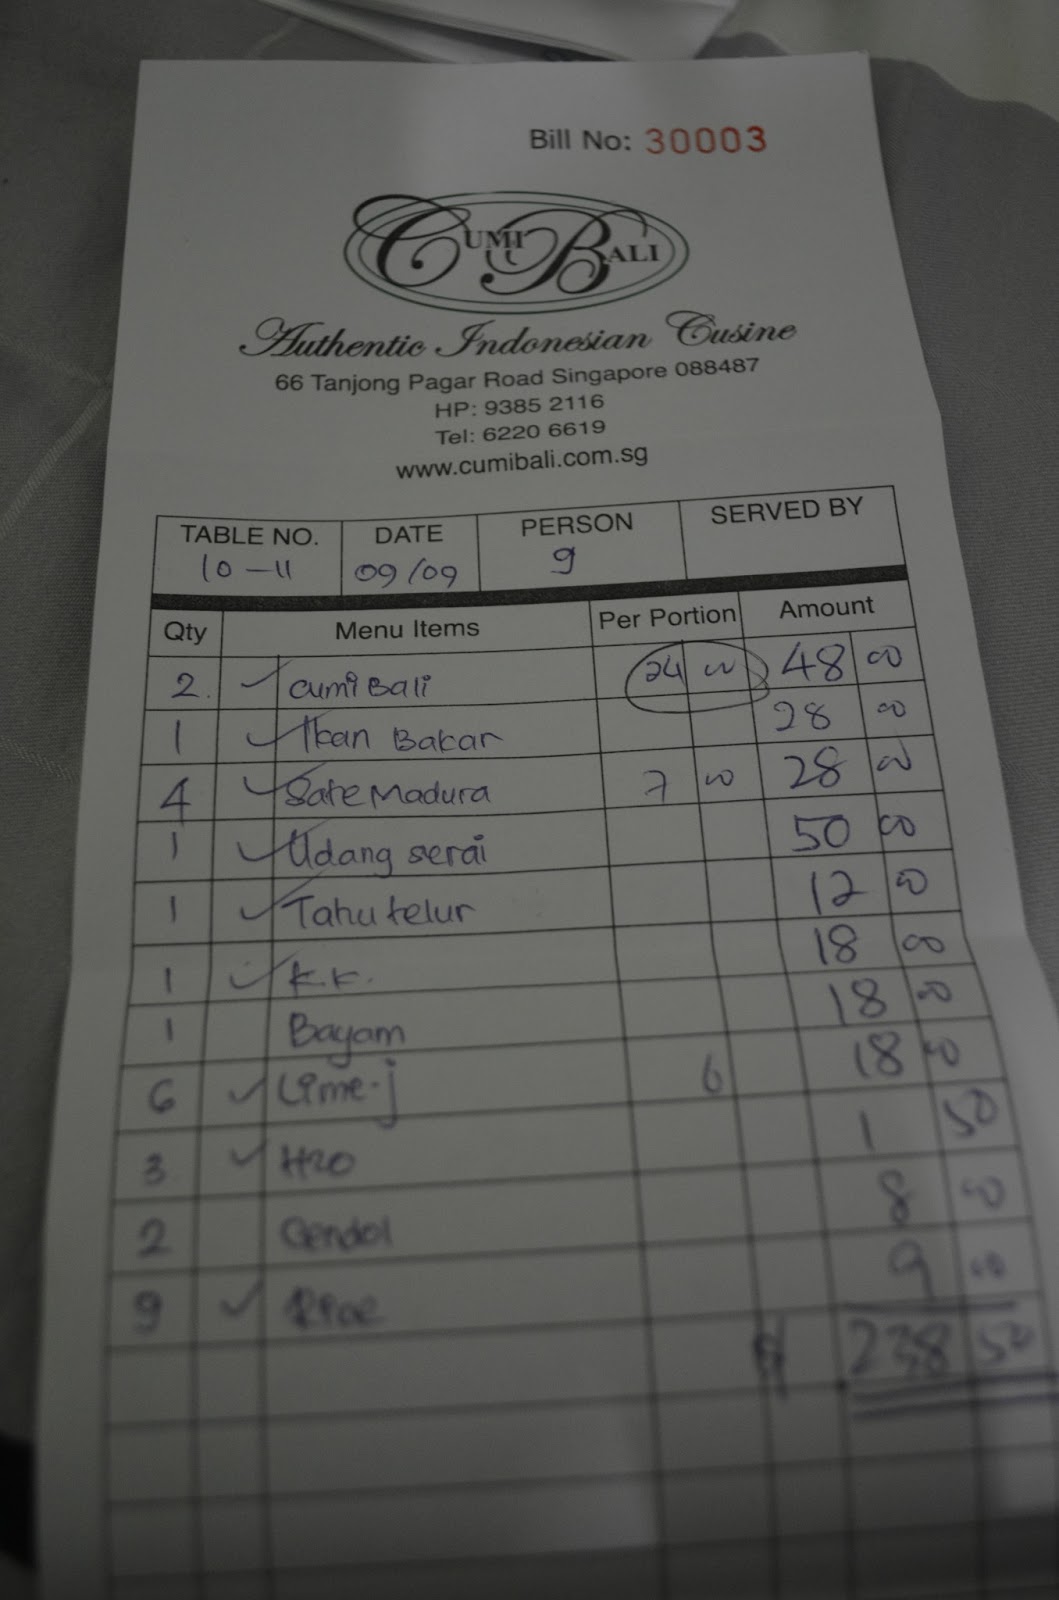 Bill No: 30003
CUMI BALI
Authentic Indonesian Cusine
66 Tanjong Pagar Road Singapore 088487
HP: 9385 2116
Tel: 6220 6619
www.cumibali.com.sg
TABLE NO. DATE PERSON SERVED BY
10-11 09/09 9
Qty Menu Items Per Portion Amount
2. cumi Bali 24 00 48 00
1 Ikan Bakar 28 00
4 Sate Madura 7 00 28 00
1 Udang serai 50 00
1 Tahu telur 12 00
1 K.K. 18 00
1 Bayam 18 00
6 Lime-j 6 18 00
3 H2O 1 50
2 Cendol 8 00
9 Rice 9 00
$ 238 50